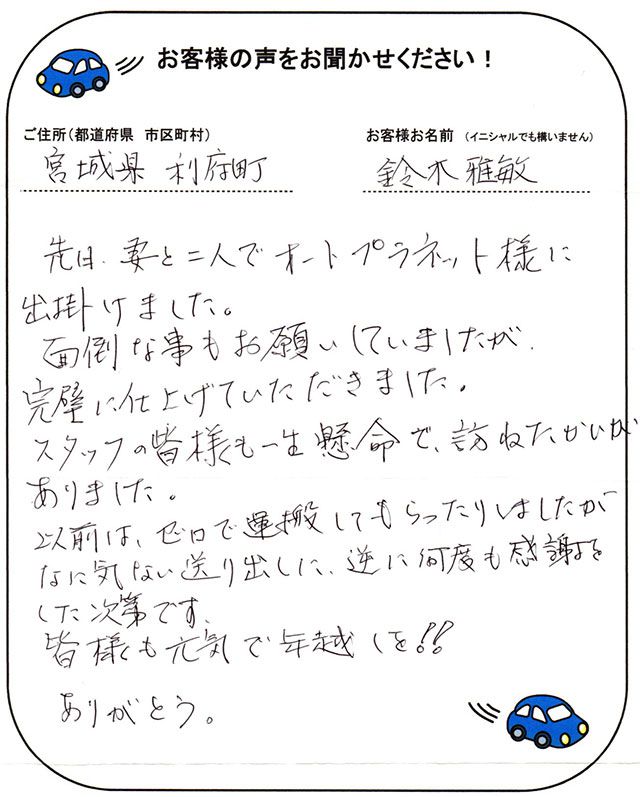 お客様の声をお聞かせください!
ご住所(都道府県 市区町村)
お客様お名前 (イニシャルでも構いません)
宮城県 利府町
鈴木雅敏
先日、妻と二人でオートプラネット様に
出掛けました。
面倒な事もお願いしていましたが、
完璧に仕上げていただきました。
スタッフの皆様も一生懸命で、訪ねたかいが
ありました。
以前は、ゼロで運搬してもらったりしましたが
なに気ない送り出しに、逆に何度も感謝を
した次第です。
皆様も元気で年越しを!!
ありがとう。